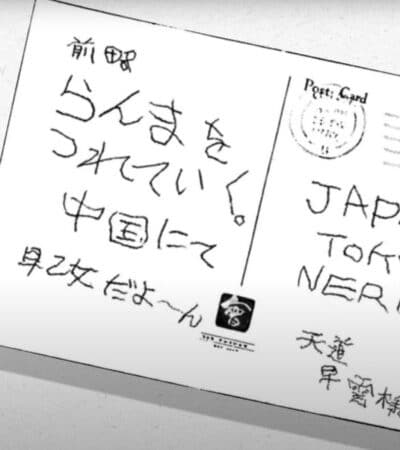 前略
らんまを
つれていく。
中国にて
早乙女だよ〜ん
Post Card
JAP
TOK
NER
天道
早雲様